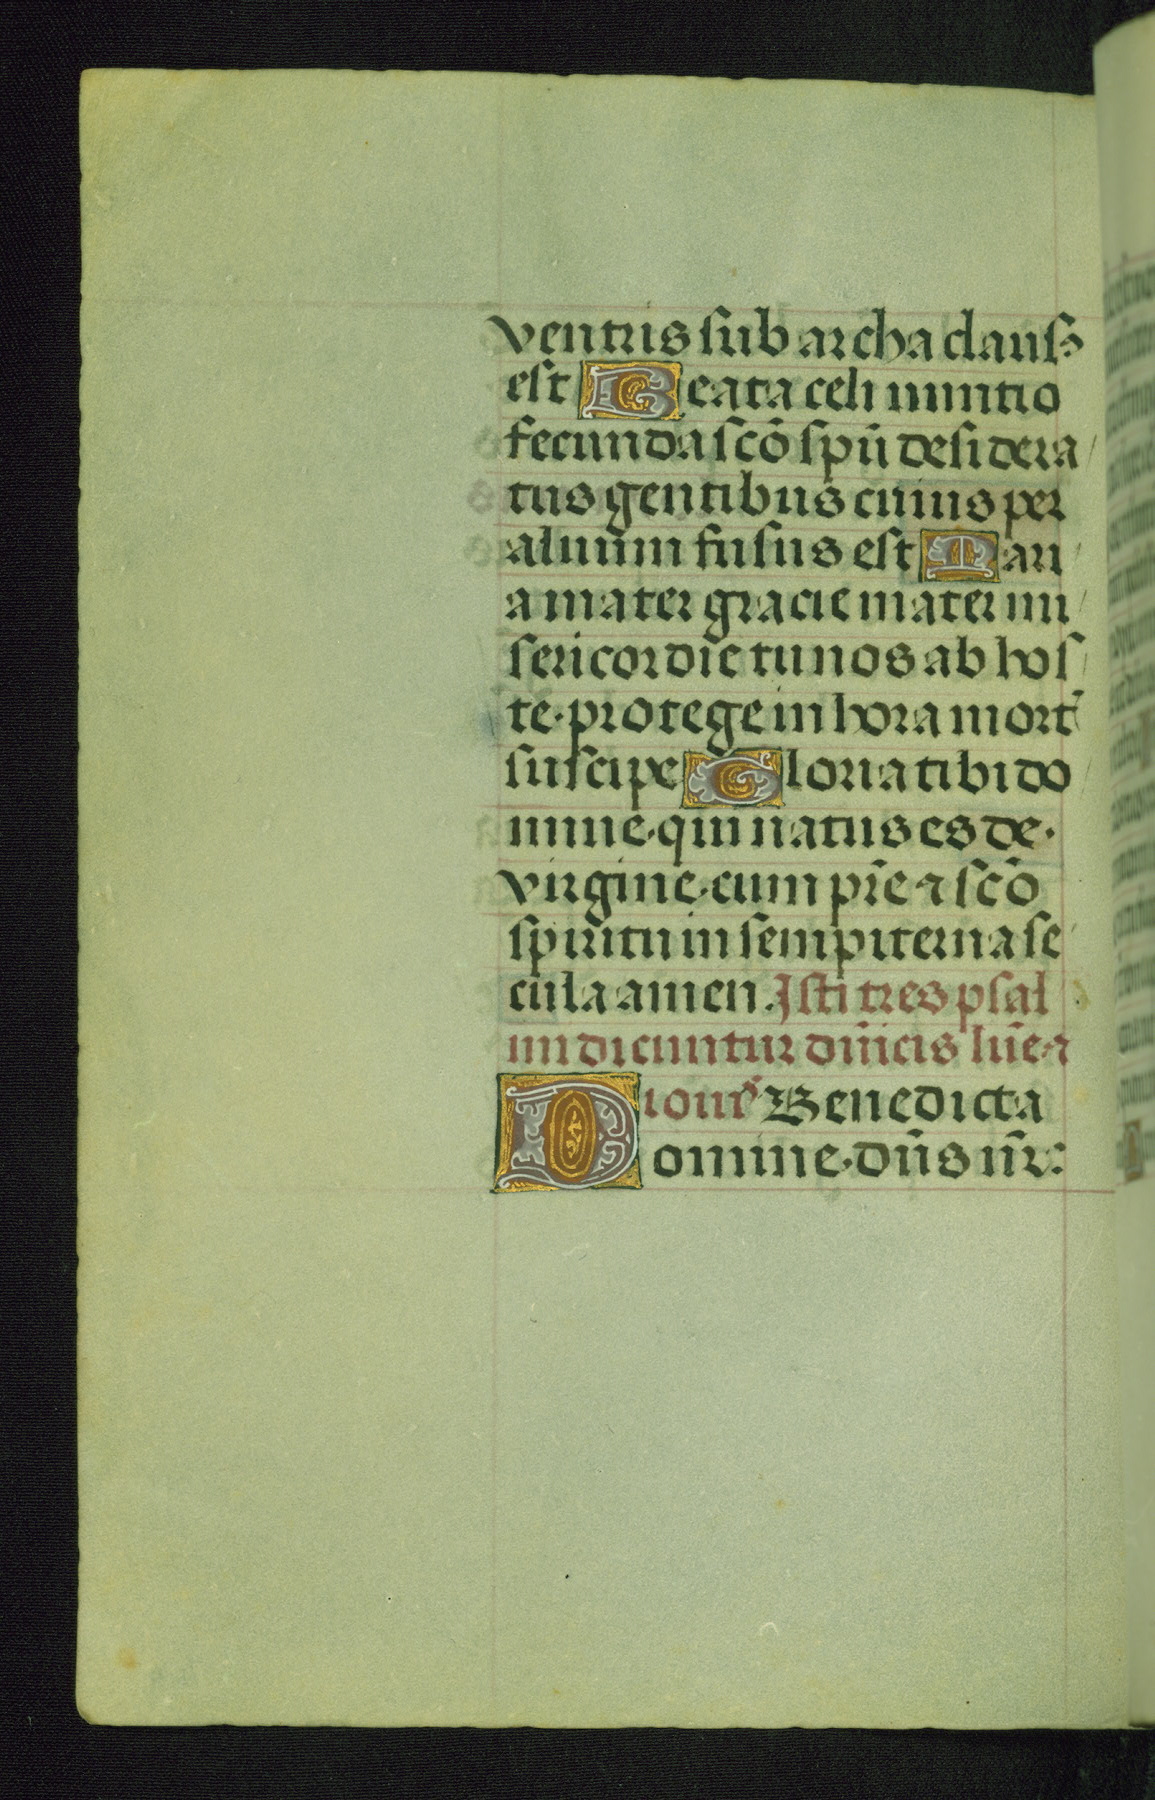 ventris sub archa claus⁹
est Beata celi nuntio
fecunda sc̄o spū desidera
tus gentibus cuius per
aluum fusus est Mari
a mater gracie mater mi
sericordie tu nos ab hos
te protege in hora mort̄
suscipe Gloria tibi do
mine qui natus es de
virgine cum pr̄e ⁊ sc̄o
spiritu in sempiterna se
cula amen. Isti tres psal
mi dicuntur dn̄icis lūe ⁊
iouis Benedicta
Domine dn̄s nr̄.